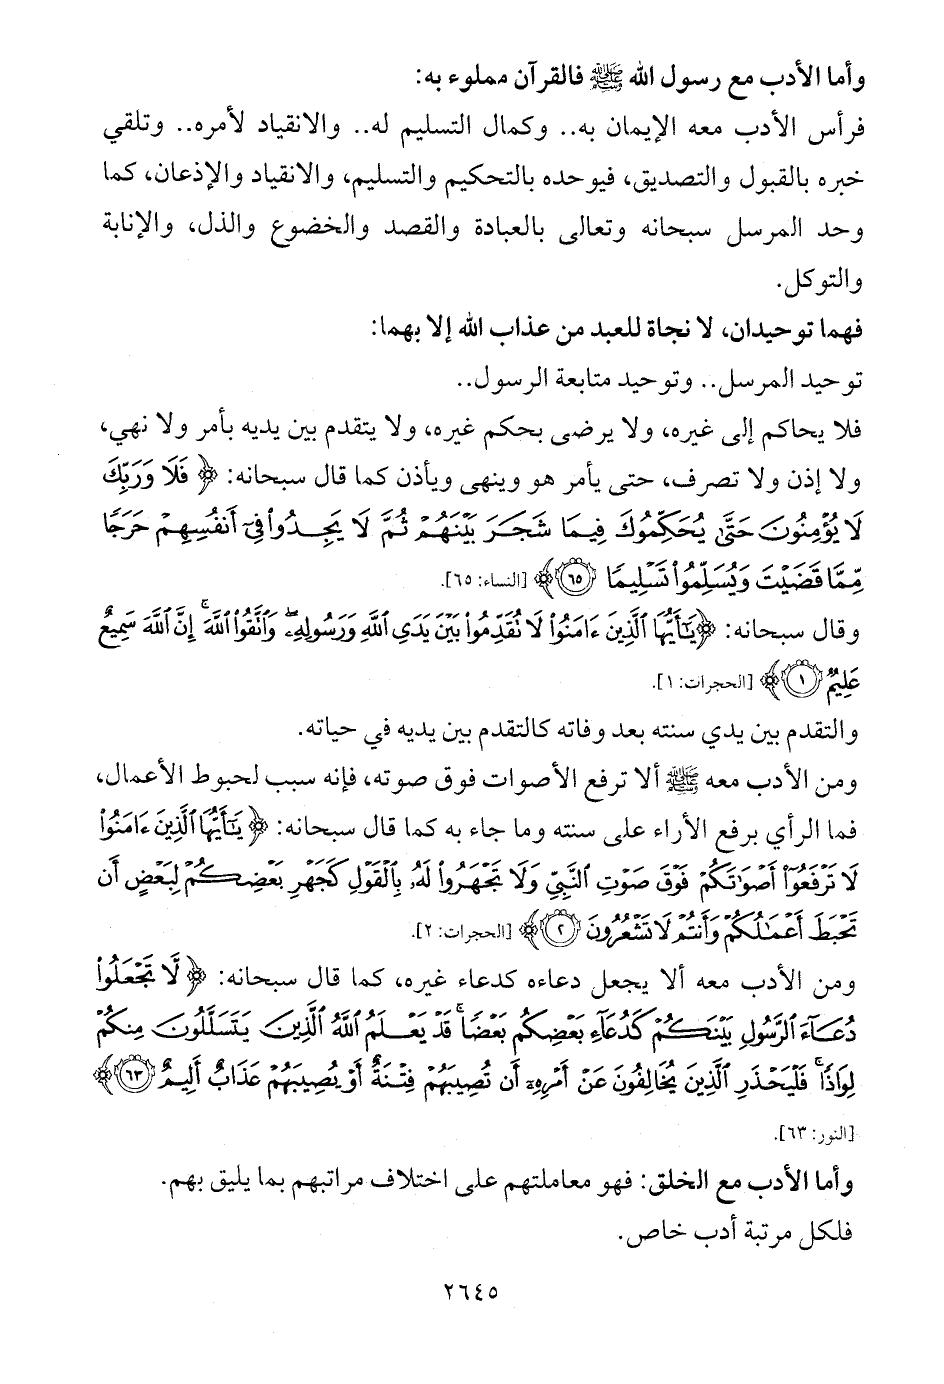 وأما الأدب مع رسول الله ﷺ فالقرآن مملوء به:
فرأس الأدب معه الإيمان به.. وكمال التسليم له.. والانقياد لأمره.. وتلقي
خبره بالقبول والتصديق، فيوحده بالتحكيم والتسليم، والانقياد والإذعان، كما
وحد المرسل سبحانه وتعالى بالعبادة والقصد والخضوع والذل، والإنابة
والتوكل.
فهما توحيدان، لا نجاة للعبد من عذاب الله إلا بهما:
توحيد المرسل.. وتوحيد متابعة الرسول..
فلا يحاكم إلى غيره، ولا يرضى بحكم غيره، ولا يتقدم بين يديه بأمر ولا نهي،
ولا إذن ولا تصرف، حتى يأمر هو وينهى ويأذن كما قال سبحانه: ﴿فَلَا وَرَبِّكَ
لَا يُؤْمِنُونَ حَتَّىٰ يُحَكِّمُوكَ فِيمَا شَجَرَ بَيْنَهُمْ ثُمَّ لَا يَجِدُوا۟ فِىٓ أَنفُسِهِمْ حَرَجًا
مِّمَّا قَضَيْتَ وَيُسَلِّمُوا۟ تَسْلِيمًا ٦٥﴾ [النساء: ٦٥].
وقال سبحانه: ﴿يَـٰٓأَيُّهَا ٱلَّذِينَ ءَامَنُوا۟ لَا تُقَدِّمُوا۟ بَيْنَ يَدَىِ ٱللَّهِ وَرَسُولِهِۦ ۖ وَٱتَّقُوا۟ ٱللَّهَ ۚ إِنَّ ٱللَّهَ سَمِيعٌ
عَلِيمٌ ١﴾ [الحجرات: ١].
والتقدم بين يدي سنته بعد وفاته كالتقدم بين يديه في حياته.
ومن الأدب معه ﷺ ألا ترفع الأصوات فوق صوته، فإنه سبب لحبوط الأعمال،
فما الرأي برفع الأراء على سنته وما جاء به كما قال سبحانه: ﴿يَـٰٓأَيُّهَا ٱلَّذِينَ ءَامَنُوا۟
لَا تَرْفَعُوٓا۟ أَصْوَٰتَكُمْ فَوْقَ صَوْتِ ٱلنَّبِىِّ وَلَا تَجْهَرُوا۟ لَهُۥ بِٱلْقَوْلِ كَجَهْرِ بَعْضِكُمْ لِبَعْضٍ أَن
تَحْبَطَ أَعْمَـٰلُكُمْ وَأَنتُمْ لَا تَشْعُرُونَ ٢﴾ [الحجرات: ٢].
ومن الأدب معه ألا يجعل دعاءه كدعاء غيره، كما قال سبحانه: ﴿لَّا تَجْعَلُوا۟
دُعَآءَ ٱلرَّسُولِ بَيْنَكُمْ كَدُعَآءِ بَعْضِكُم بَعْضًا ۚ قَدْ يَعْلَمُ ٱللَّهُ ٱلَّذِينَ يَتَسَلَّلُونَ مِنكُمْ
لِوَاذًا ۚ فَلْيَحْذَرِ ٱلَّذِينَ يُخَالِفُونَ عَنْ أَمْرِهِۦٓ أَن تُصِيبَهُمْ فِتْنَةٌ أَوْ يُصِيبَهُمْ عَذَابٌ أَلِيمٌ ٦٣﴾
[النور: ٦٣].
وأما الأدب مع الخلق: فهو معاملتهم على اختلاف مراتبهم بما يليق بهم.
فلكل مرتبة أدب خاص.
٢٦٤٥